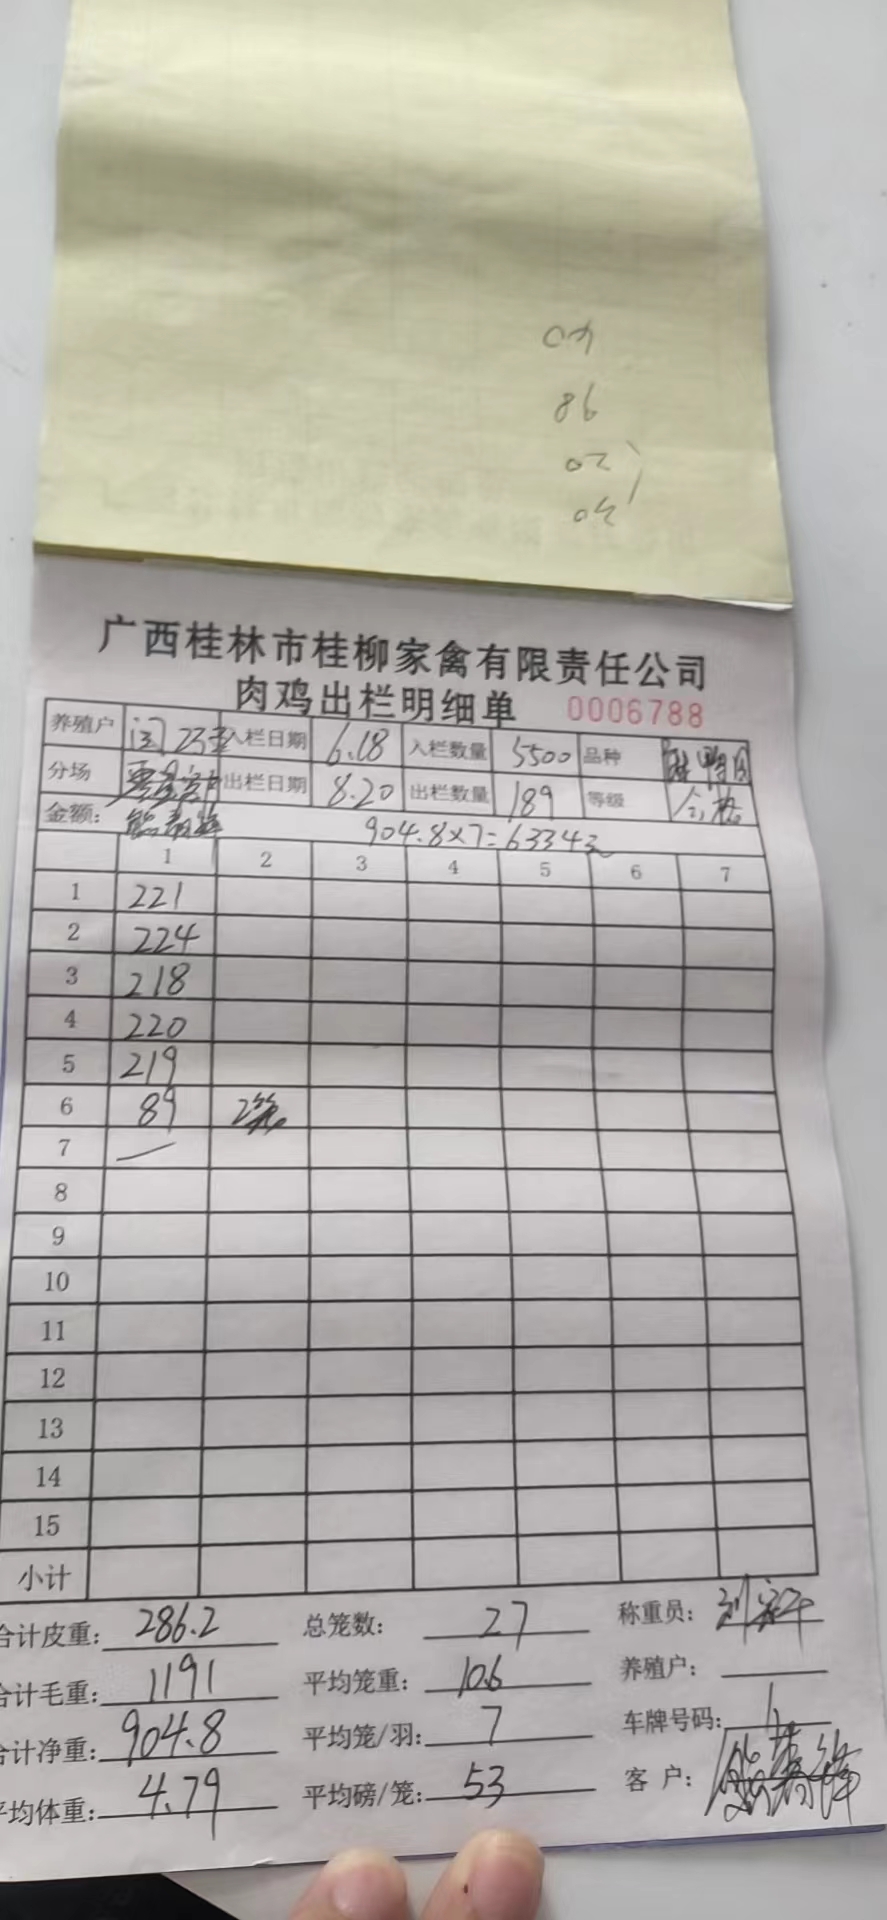 86
广西桂林市桂柳家禽有限责任公司
肉鸡出栏明细单 0006788
养殖户 入栏日期 6.18 入栏数量 5500 品种
分场 出栏日期 8.20 出栏数量 189 等级 合格
金额: 904.8×7=6334元
1 2 3 4 5 6 7
1 221
2 224
3 218
4 220
5 219
6 89 2笼
7 —
8
9
10
11
12
13
14
15
小计
合计皮重: 286.2 总笼数: 27 称重员:
合计毛重: 1191 平均笼重: 10.6 养殖户:
合计净重: 904.8 平均笼/羽: 7 车牌号码:
平均体重: 4.79 平均磅/笼: 53 客 户: